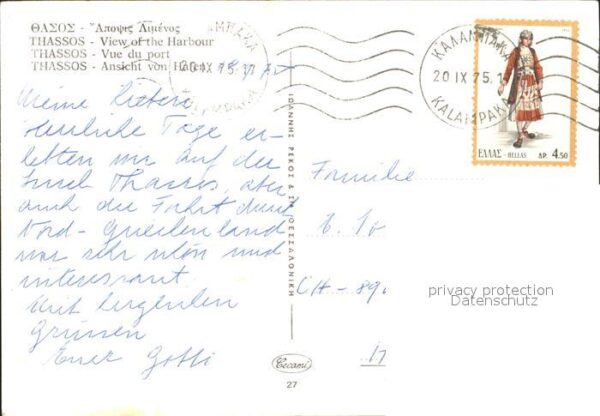 ΘΑΣΟΣ - Ἄποψις Λιμένος
THASSOS - View of the Harbour
THASSOS - Vue du port
THASSOS - Ansicht von Hafen
Meine Lieben
Herrliche Tage er-
lebten wir auf der
Insel Thassos, aber
auch die Fahrt durch
Nord-Griechenland
war sehr schön und
interessant.
Mit herzlichen
Grüssen
Euer Gotti
ΙΩΑΝΝΗΣ ΡΕΚΟΣ & ΣΙΑ ΘΕΣΣΑΛΟΝΙΚΗ
Cecami
27
ΚΑΛΑΜΠΑΚΑ
20 IX 75
KALAMPAKA
ΕΛΛΑΣ - HELLAS ΔΡ. 4.50
Familie
CH - 89
privacy protection
Datenschutz